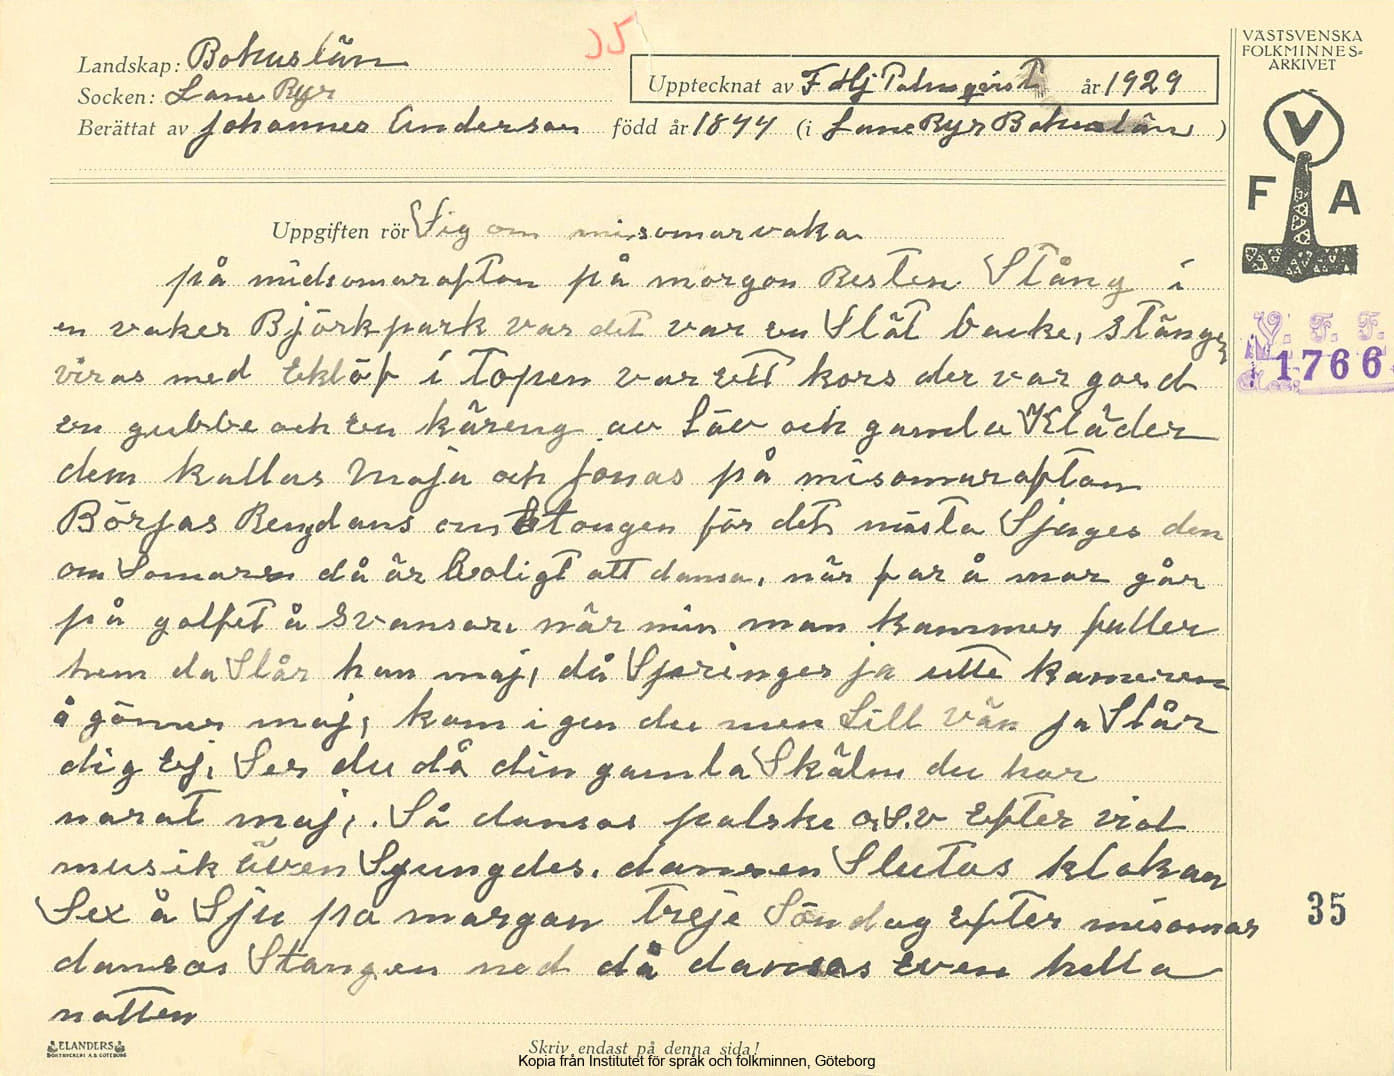 35
Landskap: Bohuslän
Socken: Lane Ryr
Upptecknat av F Hj Palmqvist år 1929
Berättat av Johannes Anderson född år 1844 (i Lane Ryr Bohuslän)
VÄSTSVENSKA
FOLKMINNES-
ARKIVET
V
F A
Uppgiften rör Sig om misomarvaka
på midsomarafton på morgon Resten Stång i
en vaker Björkpark var det var en Slät backe, stången
viras med Eklöf i Topen var ett kors der var gord
en gubbe och en käreng av Säv och gamla Kläder
dem kallas Maja och Jonas på misomarafton
Börjas Rengdans om Stongen för det mesta Sjuges den
om Somaren då är Roligt att dansa, när far å mor går
på golfet å Svansar när min man kommer fuller
hem da Slår han maj, då Springer ja utte kameren
å gömer maj, kom igen du men Lill vän ja Slår
dig Ej, Ser du då din gamla Skälm du har
narat maj, . Så dansas palske O.S.v Efter viol
musik även Sjungdes. dansen Slutas klokan
Sex å Sju pa morgon Treje Söndag Efter misomar
dansas Stangen ned då danses Even hella
natten
V. F. F.
1766
35
ELANDERS
BOKTRYCKERI A.B. GÖTEBORG
Skriv endast på denna sida!
Kopia från Institutet för språk och folkminnen, Göteborg